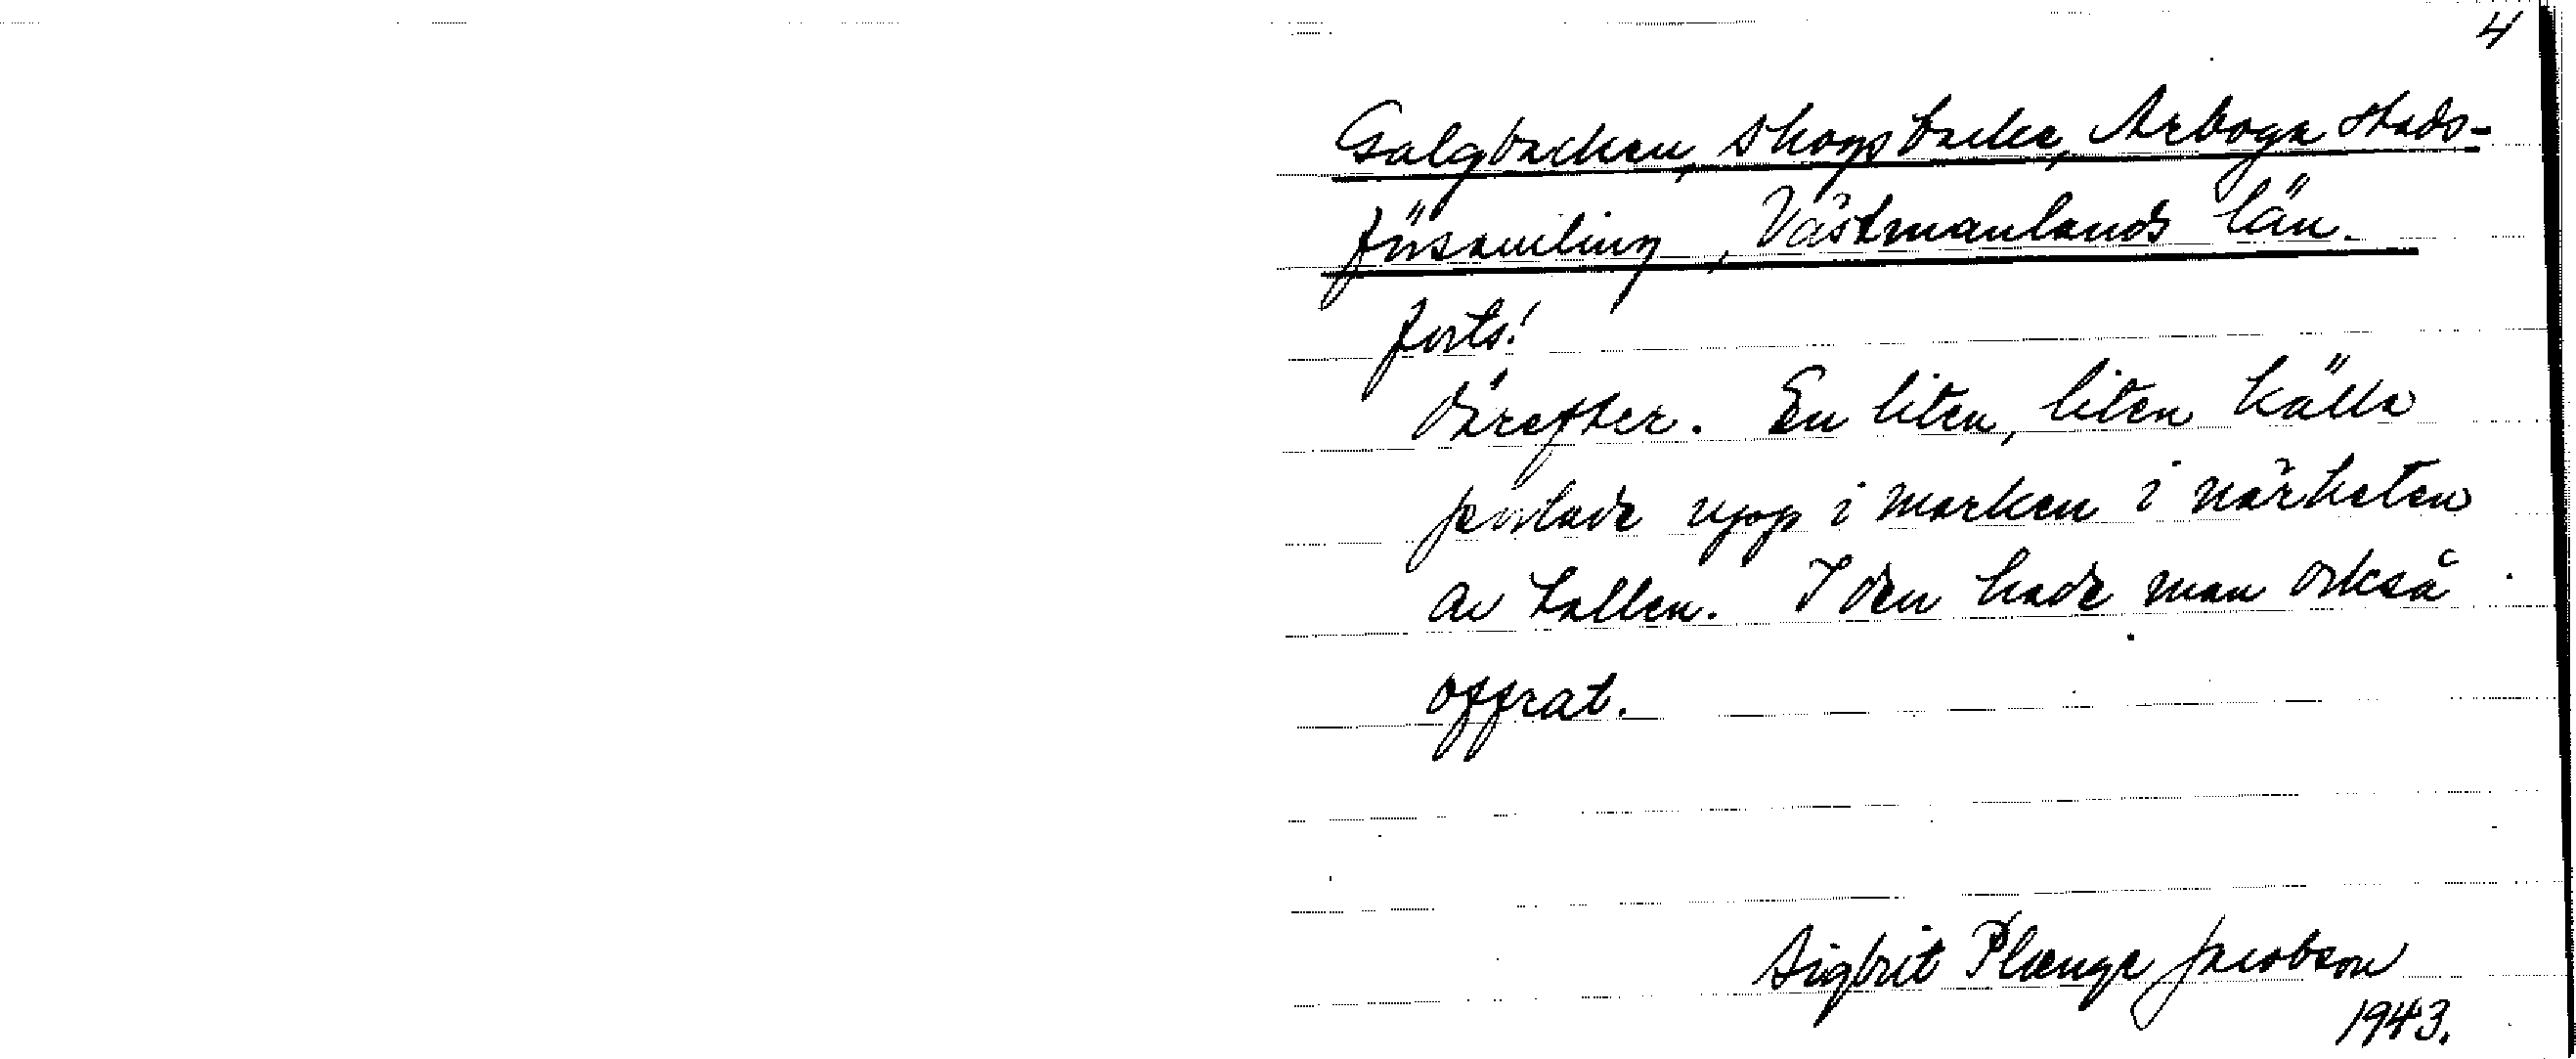 4
Galgbacken, skogsbacke, Arboga stads-
församling, Västmanlands län.
forts!
därefter. En liten, liten källa
porlade upp i marken i närheten
av tallen. I den hade man också
offrat.
Sigbrit Plænge Jacobson
1943.